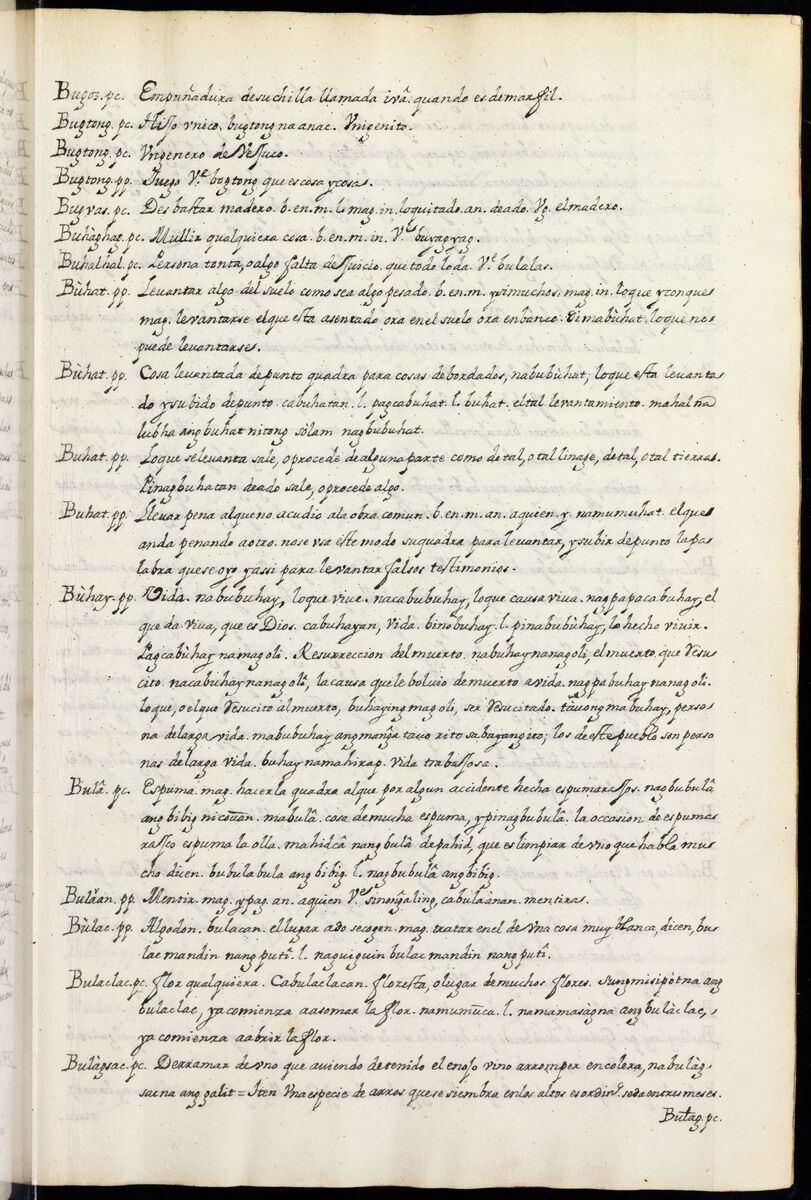 Bugoz. pc. Empuñadura de suchilla llamada ivâ. quando es de marfil.
Bugtong. pc. Hijo vnico. bugtong na anac. Vnigenito.
Bugtong. pc. Vn genero de Vejuco.
Bugtong. pp. Juego Vᵉ bogtong que es cosa y cosa.
Bugvas. pc. Desbastar madero. b. en. m. l. mag. in. lo quitado. an. deado. Vg. el madero.
Buhàghag. pc. Mullir qualquiera cosa. b. en. m. in. Vᵉ buyagyag.
Buhalhal. pc. Persona tonta, o algo falta de juicio. que todo lo da. Vᵉ bulalas.
Bùhat. pp. Levantar algo del suelo como sea algo pesado. b. en. m. y si muchos. mag. in. lo que y con que
mag. levantarse el que esta asentado ora en el suelo ora en banco. Di mabùhat. lo que no se
puede levantarse.
Bùhat. pp. Cosa levantada de punto quadra para cosas de bordados, nabubùhat; lo que esta levanta
do y subido de punto. cabuhatan. l. pagcabuhat. l. buhat. el tal levantamiento. mahal na
lubha ang buhat nitong sòlam nagbubuhat.
Buhat. pp. Lo que se levanta sale, o procede de alguna parte como de tal, o tal linage, de tal, o tal tierra.
Pinagbuhatan deado sale, o procede algo.
Buhat. pp. Llevar pena al que no acudio ala obra comun. b. en. m. an. a quien. y. namumuhat. el que
anda penando a otro. no se vsa este modo su quadra para levantar, y subir de punto la pa
labra que se oyo y assi para levantar falsos testimonios.
Bùhay. pp. Vida. nabubuhay, lo que vive. nacabubuhay, lo que causa viva. nagpapacabuhay, el
que da viva, que es Dios. cabuhayan, vida. binobuhay. l. pinabubùhay, lo hecho vivir.
Pagcabùhay na magoli. Resurreccion del muerto. nabuhay nanagoli, el muerto que Resu
cito. nacabùhay nanagoli, la causa que le bolvio de muerto a vida. nagpabuhay nanagoli.
lo que, o el que Resucito al muerto, buhaying magoli, ser Resucitado. tavong mabuhay, perso
na de larga vida. mabubuhay ang manga tavo rito sa bayang ito; los de este pueblo son perso
nas de larga vida. buhay na mahirap. vida trabajosa.
Bulâ. pc. Espuma. mag. hacerla quadra al que por algun accidente hecha espumarajos. nagbubulâ
ang bibig ni couan. mabulâ. cosa de mucha espuma, y pinagbubulâ. la occasion de espuma
rajco espuma la olla. mahidcâ nang bulâ de pahid, que es limpiar de vno que habla mu
cho dicen. bubula bula ang bibig. l. nagbubulâ ang bibig.
Bulãan. pp. Mentir. mag. y pag. an. a quien Vᵉ sinongaling, cabulàanan. mentiras.
Bùlac. pp. Algodon. bulacan. el lugar ado se cogen. mag. tratar en el de vna cosa muy blanca, dicen, bu
lac mandin nang puti. l. naguiguin bulac mandin nang puti.
Bulaclac. pc. flor qualquiera. Cabulaclacan. floresta, o lugar de muchos flores. sungmisipòt na ang
bulaclac, ya comienza a asomar la flor. namumuca. l. namamasàgna ang bulàclac,
ya comienza a abrir la flor.
Bulàgsac. pc. Derramar de vno que aviendo detenido el enojo vino a rromper en colera, nabulàg
sac na ang galit = Iten Vna especie de arros que se siembra en los altos es ordinº. se da en tres meses.
Bulag. pc.